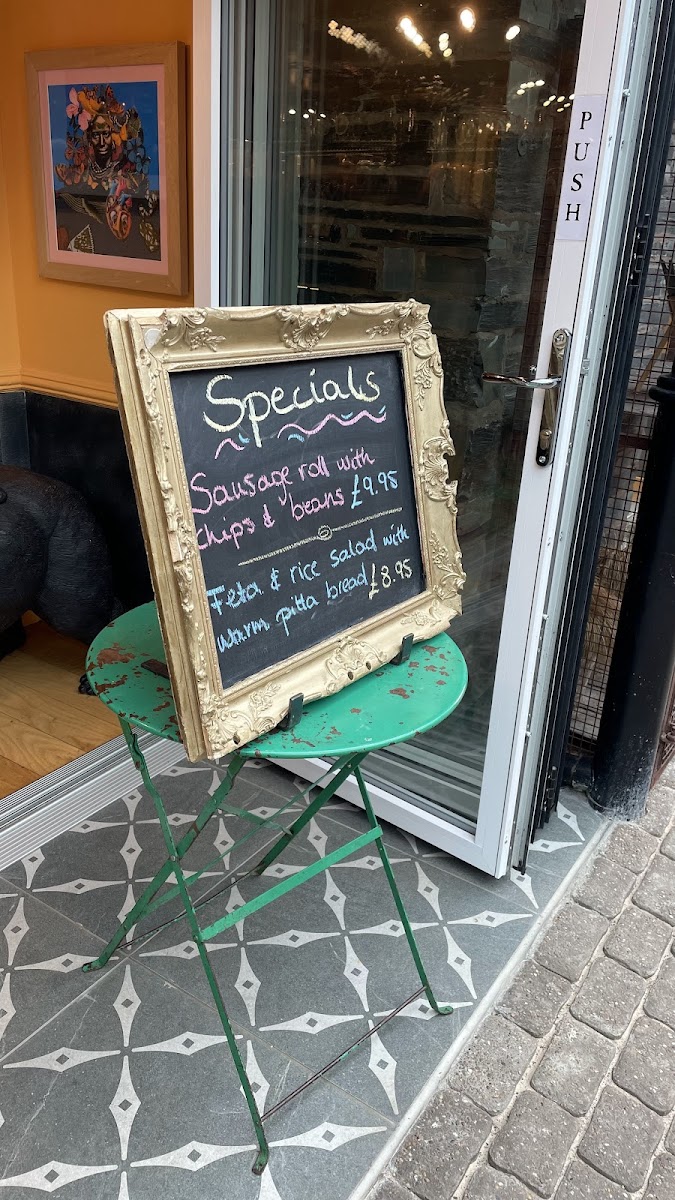 PUSH
Specials
Sausage roll with
chips & beans £9.95
Feta & rice salad with
warm pitta bread £8.95